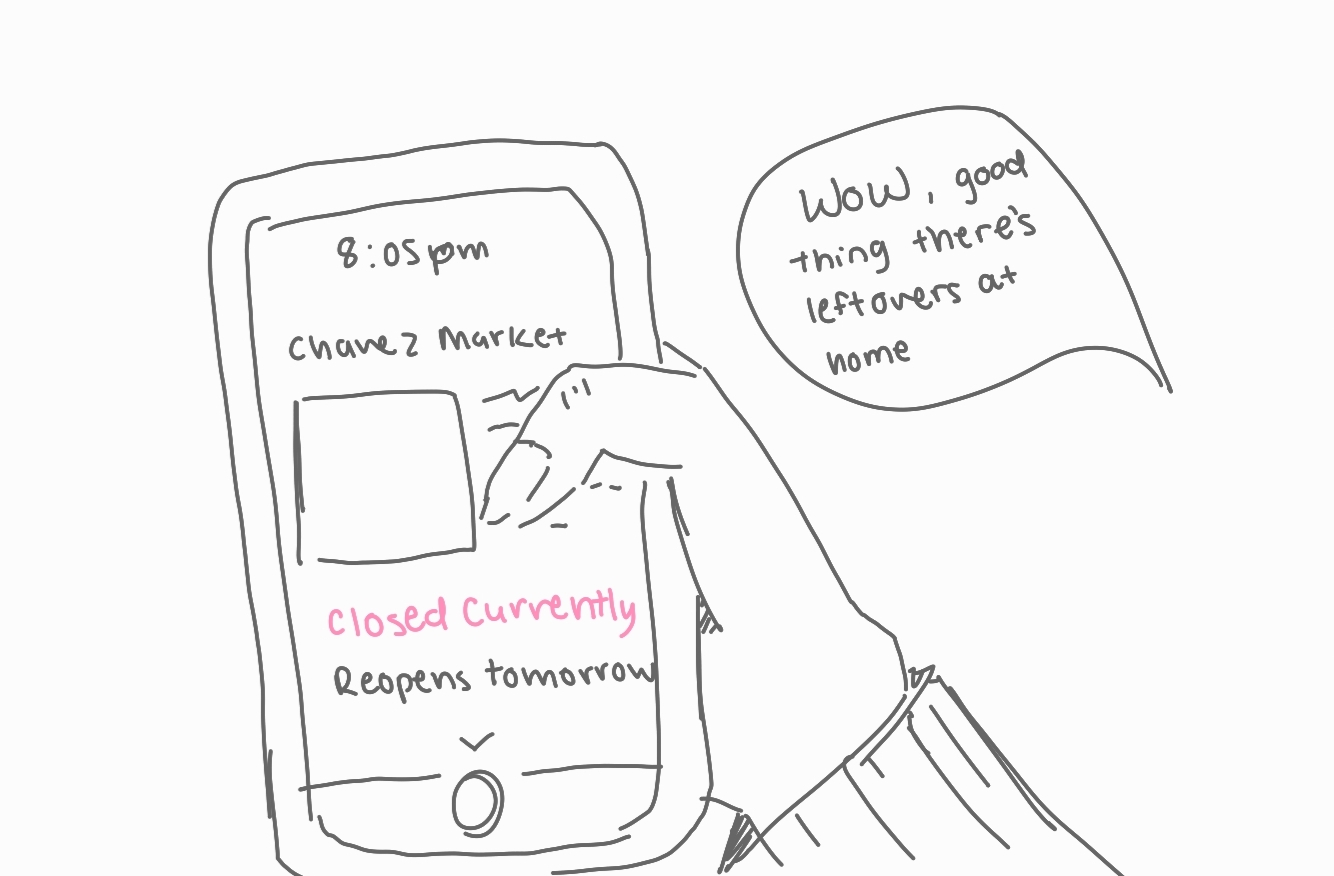 8:05pm
Chavez Market
Closed Currently
Reopens tomorrow
WoW, good
thing there's
leftovers at
home